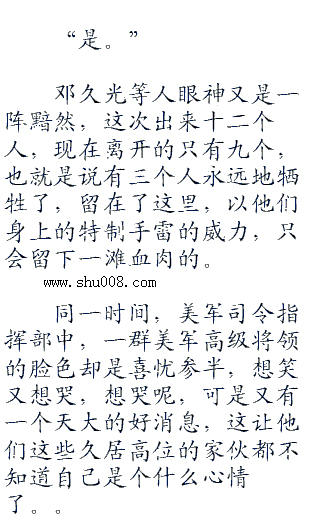 “是。”
邓久光等人眼神又是一
阵黯然，这次出来十二个
人，现在离开的只有九个，
也就是说有三个人永远地牺
牲了，留在了这里，以他们
身上的特制手雷的威力，只
会留下一滩血肉的。
www.shu008.com
同一时间，美军司令指
挥部中，一群美军高级将领
的脸色却是喜忧参半，想笑
又想哭，想哭呢，可是又有
一个天大的好消息，这让他
们这些久居高位的家伙都不
知道自己是个什么心情
了。。